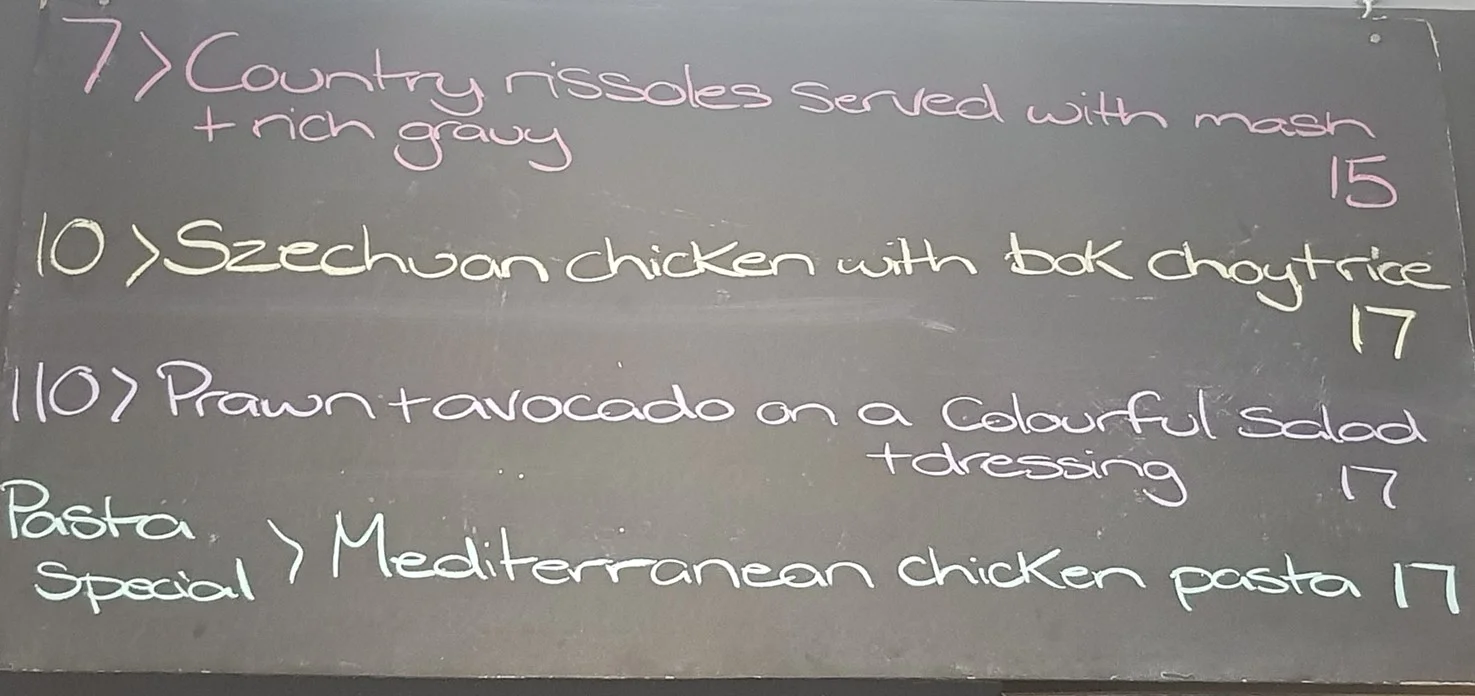 7> Country rissoles served with mash
+ rich gravy
15
10 > Szechuan chicken with bok choy + rice
17
110> Prawn + avocado on a Colourful Salad
+ dressing 17
Pasta
Special > Mediterranean chicken pasta 17